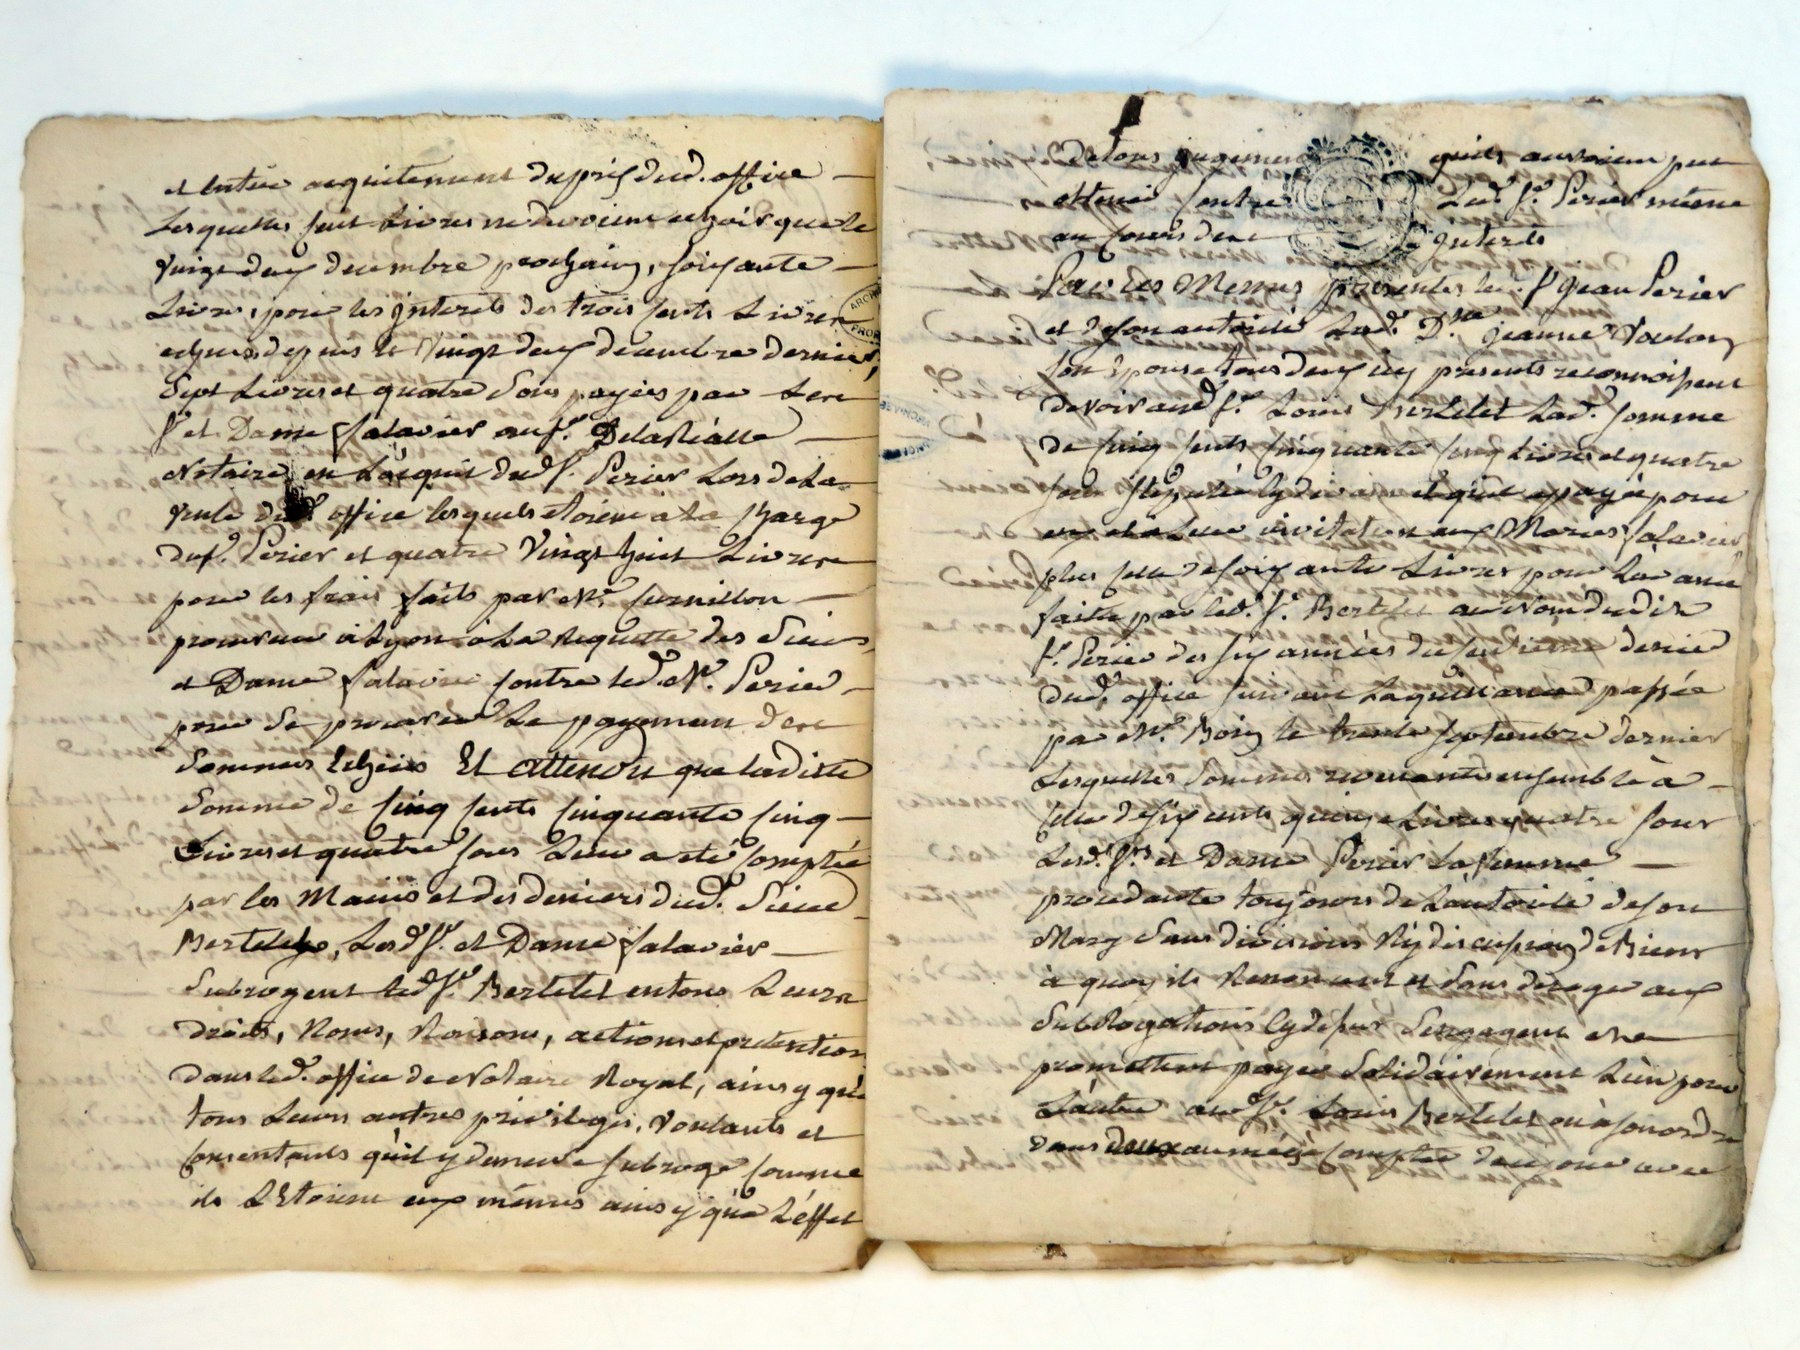 et entier acquitement du prix dud. office
Lesquelles cent Livres ne devoient echoir que le
vingt deux decembre prochain, soixante
Livres, pour les jnterets des trois cents Livres
echues depuis le vingt deux decembre dernier,
Sept Livres et quatre Sous payées par Les
Sr. et Dame Salavier au Sr. Delasialle
Notaire en L'acquit dud Sr. Perier Lors de La
vente dud. office lesquels etoient a La Charge
du Sr. Perier et quatre Vingt huit Livres
pour les frais faits par Me. Curnillon
procureur à Lyon à La Requette des Sieurs
et Dame Salavier contre led. Me. Perier
pour Se procurer Le payement des
Sommes Echües Et attendu que la ditte
Somme de Cinq Cents Cinquante Cinq
Livres et quatre sous Leur a eté Comptée
par les Mains et des deniers dud. Sieur
Bertelet, Lesd Sr. et Dame Salavier
Subrogent led Sr. Bertelet en tous Leurs
droits, Noms, Raisons, actions et pretention
dans led. office de Notaire Royal, ainsy qu'à
tous Leurs autres privileges, voulants et
Consentants qu'il y demeure subrogé Comme
ils L'Etoient eux mêmes ainsy qu'à L'éffet
de tous jugements quils auroient pu
obtenir Contre Led. Sr. Perier même
au Cours des jnterets
Par ces Memes presentes led. Sr Jean Perier
et de son autorité Lad. De. jeanne Voulon
Son Epouse tous deux icy presents reconnoissent
devoir aud Sr. Louis Bertelet Lad. Somme
de Cinq Cents Cinquante Cinq Livres et quatre
Sous Stipulée Cy devant et qu'il a payée pour
eux et à Leur invitation aux Maries Salavier
plus celle de soixante Livres pour L'avance
faite par led. Sr. Bertelet au Nom dudit
Sr. Perier des six années du Centieme denier
dud. office suivant La quittance passée
par Me. Boin le trente Septembre dernier
Lesquelles Sommes revenantes ensemble à
Celle de six cents quinze Livres quatre Sous
Lesd. Srs et Dame Perier La femme
procedante toujours de L'autorité de son
Mary Sans division Ny discussion de Biens
à quoy ils Renoncent et Sans deroger aux
Subrogations Cy dessus S'engagent et
promettent payer Solidairement L'un pour
L'autre aud Sr. Louis Bertelet ou à son ordre
dans deux années à Compter de ce jour avec